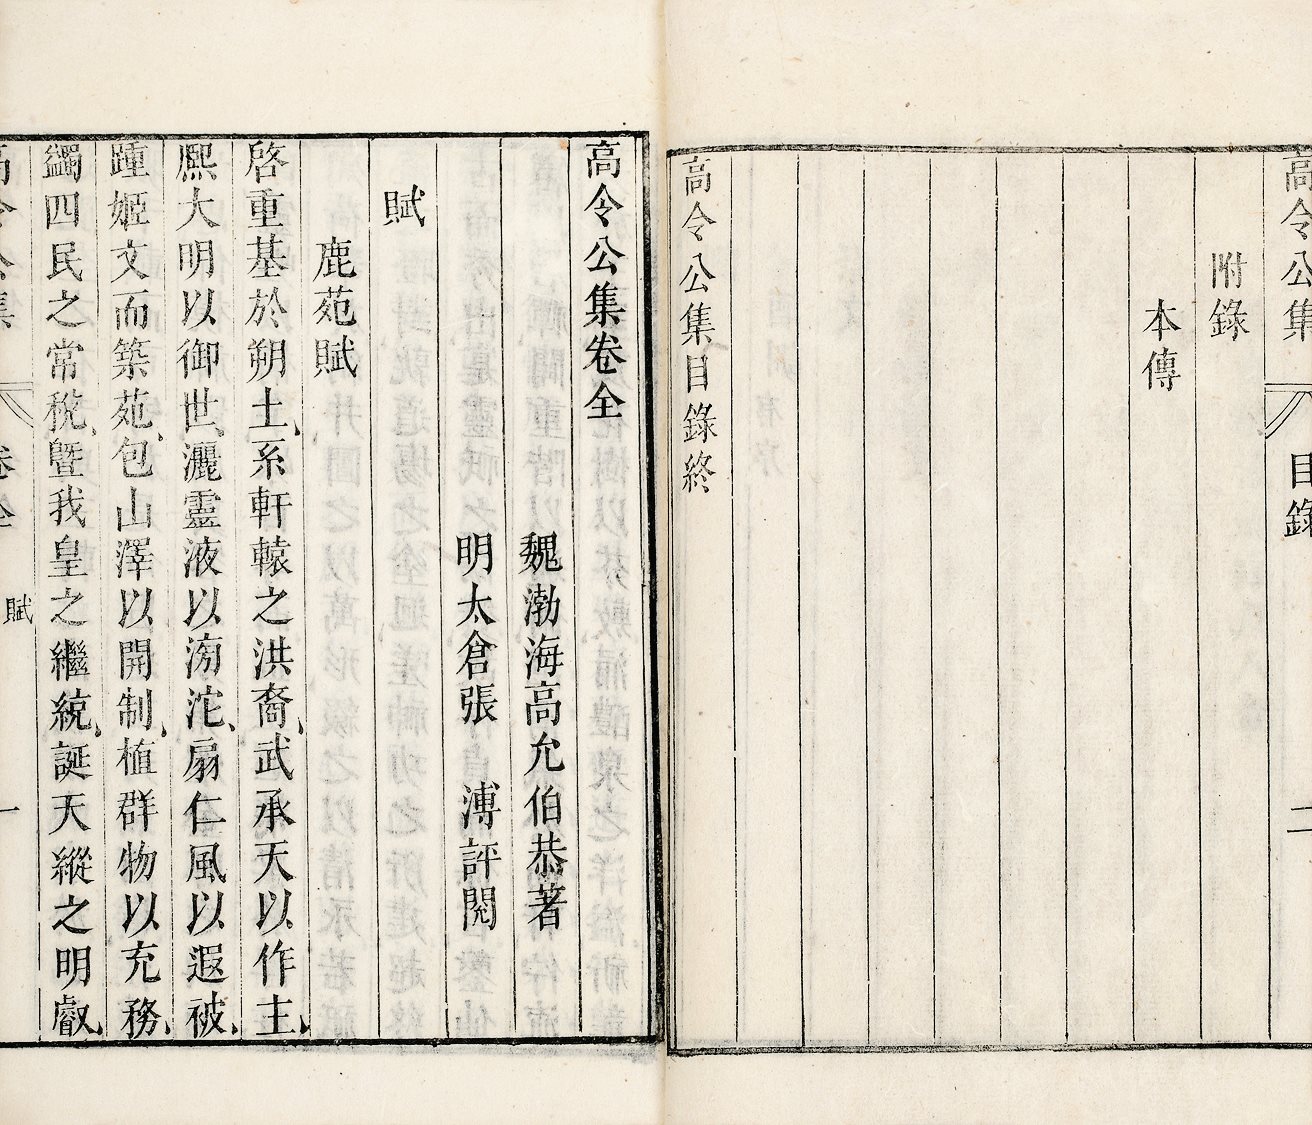 高令公集
目錄
二
附錄
本傳
高令公集目錄終
高令公集卷全
魏渤海高允伯恭著
明太倉張溥評閱
賦
鹿苑賦
啓重基於朔土、系軒轅之洪裔、武承天以作主、
熈大明以御世、灑靈液以滂沱、扇仁風以遐被、
踵姬文而築苑、包山澤以開制、植群物以充務、
蠲四民之常稅、曁我皇之繼統、誕天縱之明叡、
高令公集
卷全
賦
一